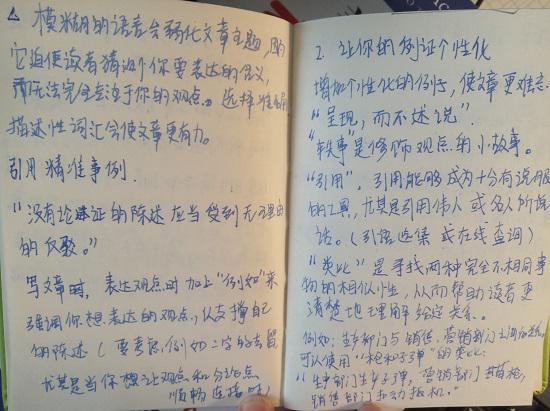 模糊的语言会弱化文章主题,因
它迫使读者猜测你要表达的含义,
而无法完全专注于你的观点。选择准确
描述性词汇会使文章更有力。
引用精准事例.
“没有论证的陈述应当受到无理由
的反驳。”
写文章时,表达观点时加上“例如”来
强调你想表达的观点,以支撑自己
的陈述(要考虑,例如二字的去留,
尤其是当你想让观点和分论点
顺畅连接时)
2. 让你的例证个性化
增加个性化的例子,使文章更难忘.
“呈现,而不述说”.
“轶事”是修饰观点的小故事。
“引用”,引用能够成为十分有说服
的工具,尤其是引用伟人或名人所说
话。(引语选集或在线查询)
“类比”是寻找两种完全不相同事
物的相似性,从而帮助读者更
清楚地理解给定关系。
例如:生产部门与销售、营销部门之间的
可以使用“枪和子弹”的类比:
“生产部门生产子弹,营销部门 枪,
销售部门扣动扳机.”